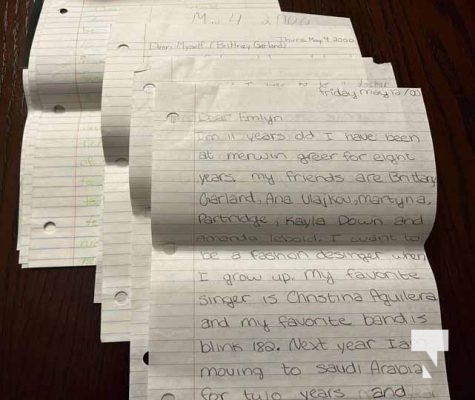 May 4 2000
Dear Myself (Brittney Garland)
Thurs May 4, 2000
Friday May 12/00
Dear Emlyn
I'm 11 years old I have been
at merwin greer for eight
years, my friends are Brittany
Garland, Ana Vlajkov, Martyna,
Partridge, Kayla Down and
Amanda I want to
be a fashon desinger when
I grow up. My favorite
singer is Christina Aguilera
and my favorite band is
blink 182. Next year I am
moving to saudi Arabia
for two years and